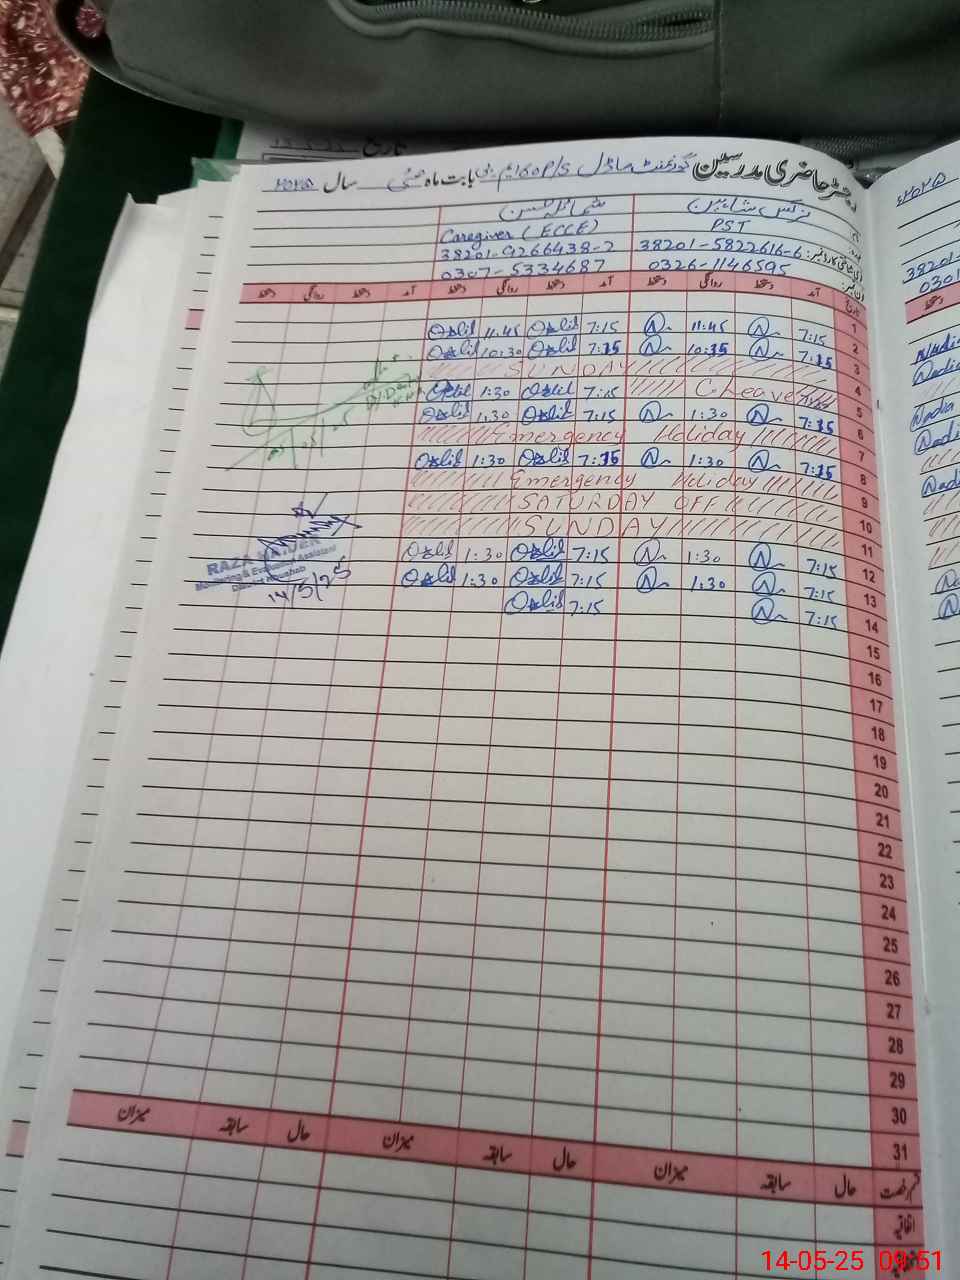 تاریخ
رجسٹر حاضری مدرسین گورنمنٹ ماڈل P/S بابت ماہ مئی سال ۲۰۲۵
نرگس شاہین
PST Caregiver (ECCE)
38201-5822616-6 38201-9266438-2
0326-1146595 0307-5334687
تاریخ آمد دستخط روانگی دستخط آمد دستخط روانگی دستخط آمد دستخط روانگی دستخط
1 7:15 11:45 7:15 11:45
2 7:15 10:35 7:15 10:30
3 SUNDAY
4 C Leave 7:15 1:30
5 7:15 1:30 7:15 1:30
6 Emergency Holiday
7 7:15 1:30 7:15 1:30
8 Emergency Holiday
9 SATURDAY OFF
10 SUNDAY
11 7:15 1:30 7:15 1:30
12 7:15 1:30 7:15 1:30
13 7:15 7:15
14
15
16
17
18
19
20
21
22
23
24
25
26
27
28
29
30
31
RAZA
Monitoring & Evaluation Assistant
District Khushab
14/5/25
قسم رخصت حال سابقہ میزان حال سابقہ میزان حال سابقہ میزان
اتفاقیہ
۲۰۲۵
38201-
0301
دستخط
Nadia
Nadia
Nadia
Nadia
Nadia
14-05-25 09:51